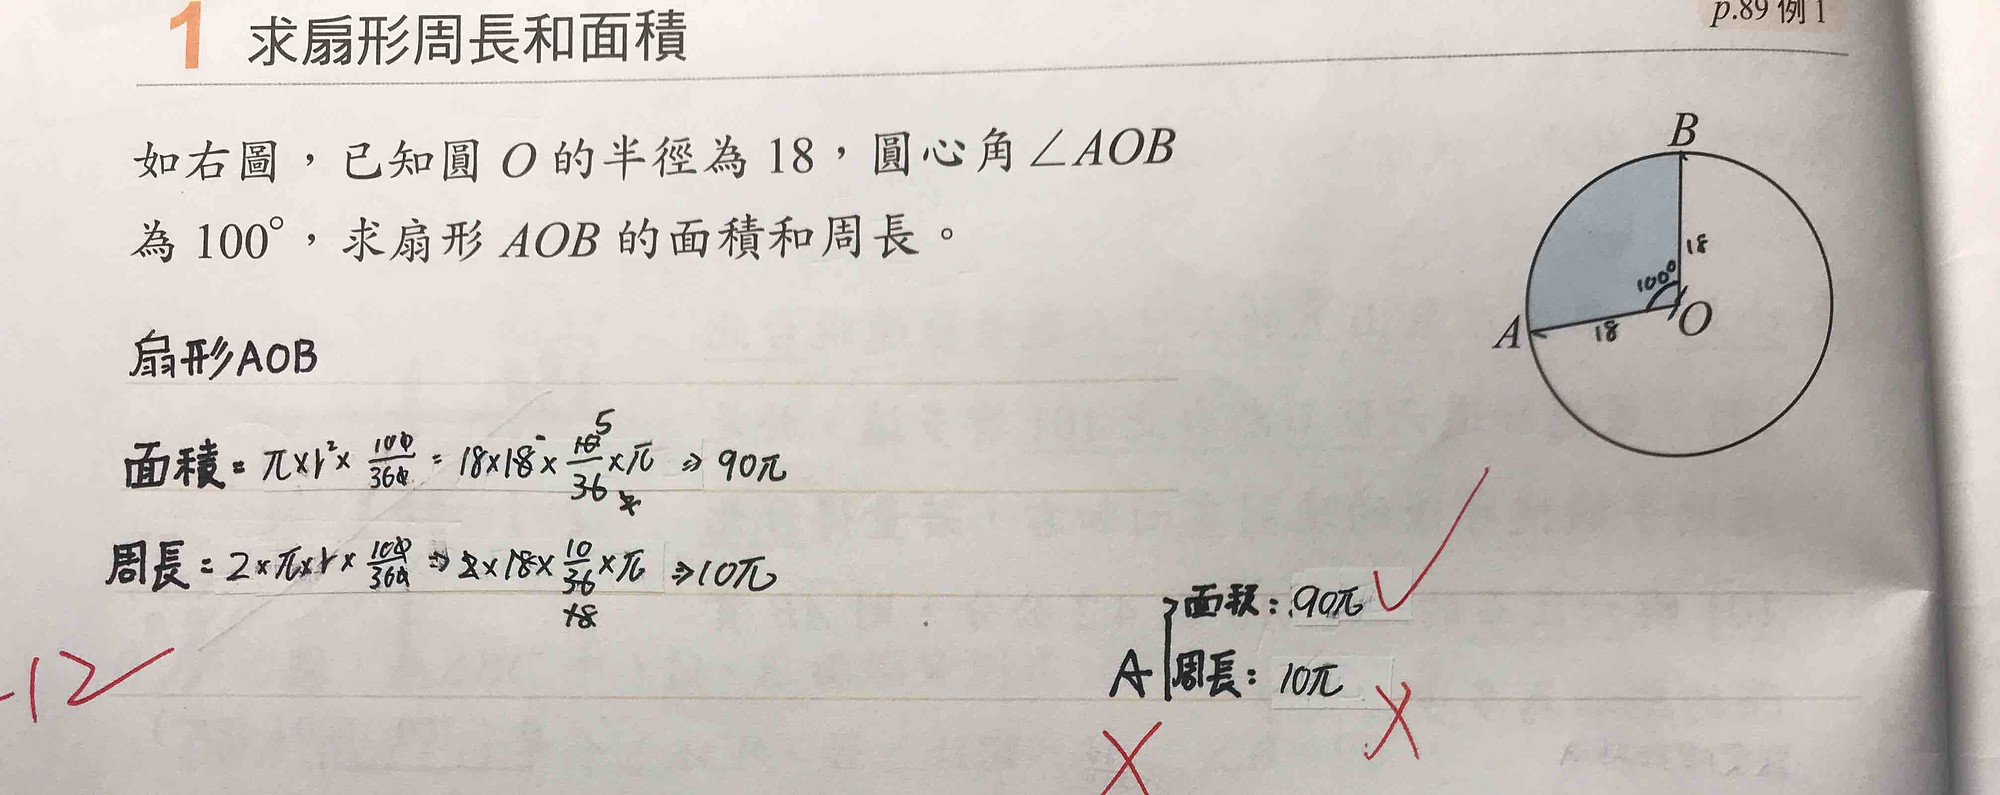 1 求扇形周長和面積
p.89 例1
如右圖，已知圓 O 的半徑為 18，圓心角∠AOB
為 100°，求扇形 AOB 的面積和周長。
B
18
100°
O
A
18
扇形AOB
面積 = π×r²× 100/360 = 18×18× 10/36 ×π ⇒ 90π
5
周長 = 2×π×r× 100/360 ⇒ 2×18× 10/36 ×π ⇒ 10π
18
面积: 90π
A 周長: 10π
-12